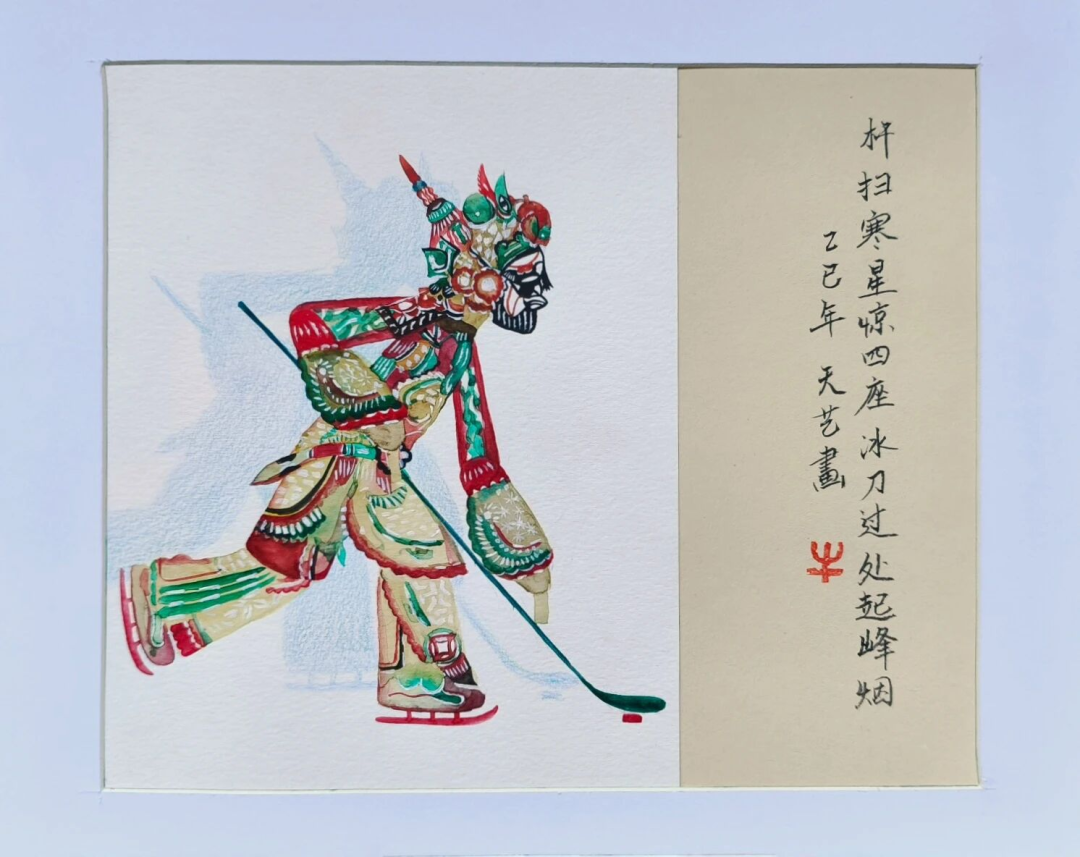 杆扫寒星惊四座冰刀过处起峰烟
乙巳年 天艺畫